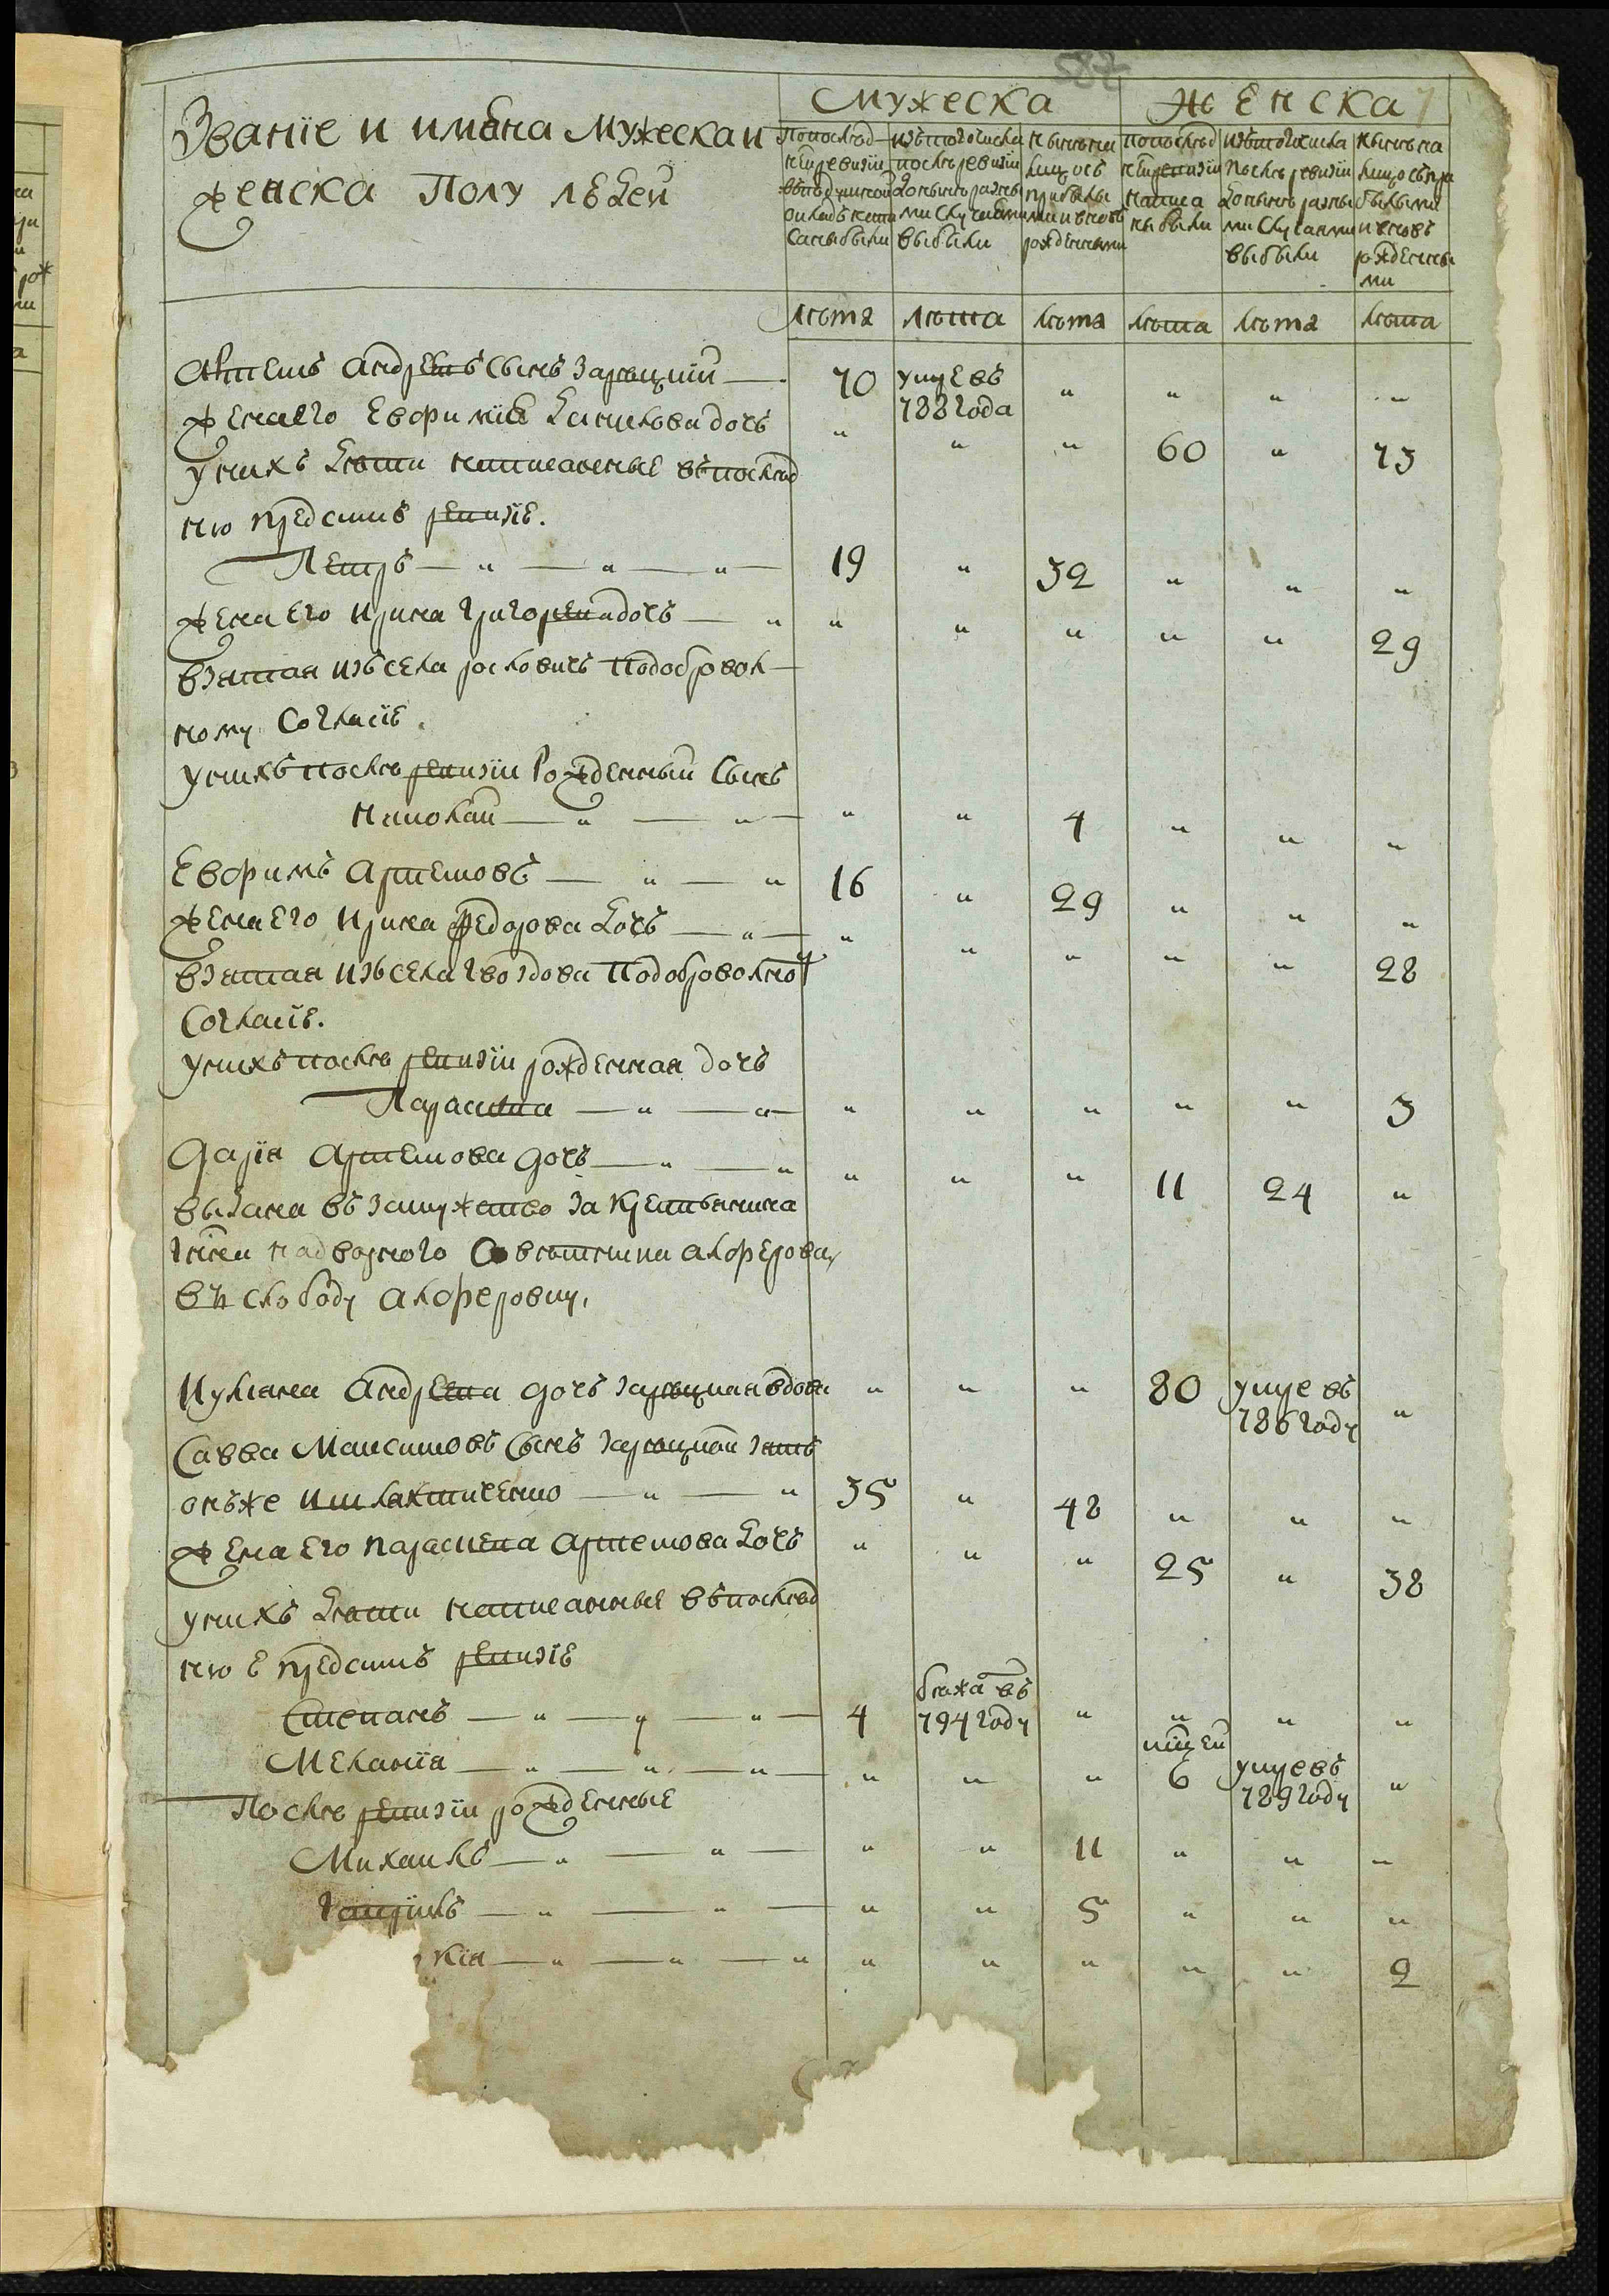 587
Званїе и имѣна мужеска и
женска полу людей
Мужеска
Женска
Попослѣд
ней ревизїи
въподушной
окладъ напи
саны были
Изътого числа
послѣ ревизїи
донынѣ разны
ми случаями
выбыли
Нынѣ на
лицо съ
прибылы
ми и вновь
рожденными
Попослѣд
ней ревизїи
написа
ны были
Изътого числа
послѣ ревизїи
донынѣ разны
ми случаями
выбыли
Нынѣ на
лицо съ при
былыми
и вновь
рожденны
ми
лѣта лѣта лѣта лѣта лѣта лѣта
Артемъ Андреевъ сынъ Зарѣцкий — 70 умре въ 788 года " " " "
жена его Евфимїя Данилова дочь " " " 60 " 73
у нихъ дѣти написанные въпослѣд
нюю предсимъ ревизїе.
Петръ — " — " — " — 19 " 32 " " "
жена его Ирина Григорева дочь — " " " " " " 29
взятая изъ села росковичъ подоброволь
ному согласїе.
у нихъ послѣ ревизїи рожденный сынъ
Николай — " — " — " " 4 " " "
Евфимъ Артемовъ — " — " 16 " 29 " " "
жена его Ирина Федорова дочь — " — " " " " " 28
взятая изъ села Гвоздова подоброволному
согласїе.
у нихъ послѣ ревизїи рожденная дочь
Параскева — " — " — " " " " " 3
Дарїя Артемова дочь — " — " " " " 11 24 "
выдана въ замужетво за крестьянина
надворного Совѣтника алферова,
въ слободу алферовку,
Иулияна Андреева дочь Зарѣцкая вдова " " " 80 умре въ 786 году "
Савва Максимовъ сынъ Зарѣцкой зять
онъже — " — " 35 " 48 " " "
жена его параскева Артемова дочь " " " 25 " 38
у нихъ дѣти написанные въпослѣд
нюю предсимъ ревизїе
Степанъ — " — " — " — 4 бѣжа въ 794 году " " " "
Меланїя — " — " — " — " " " 6 умре въ 789 году "
После ревизїи рожденные
Михаилъ — " — " — " " 11 " " "
Гаврїилъ — " — " — " " 5 " " "
кїя — " — " — " " " " " " 2